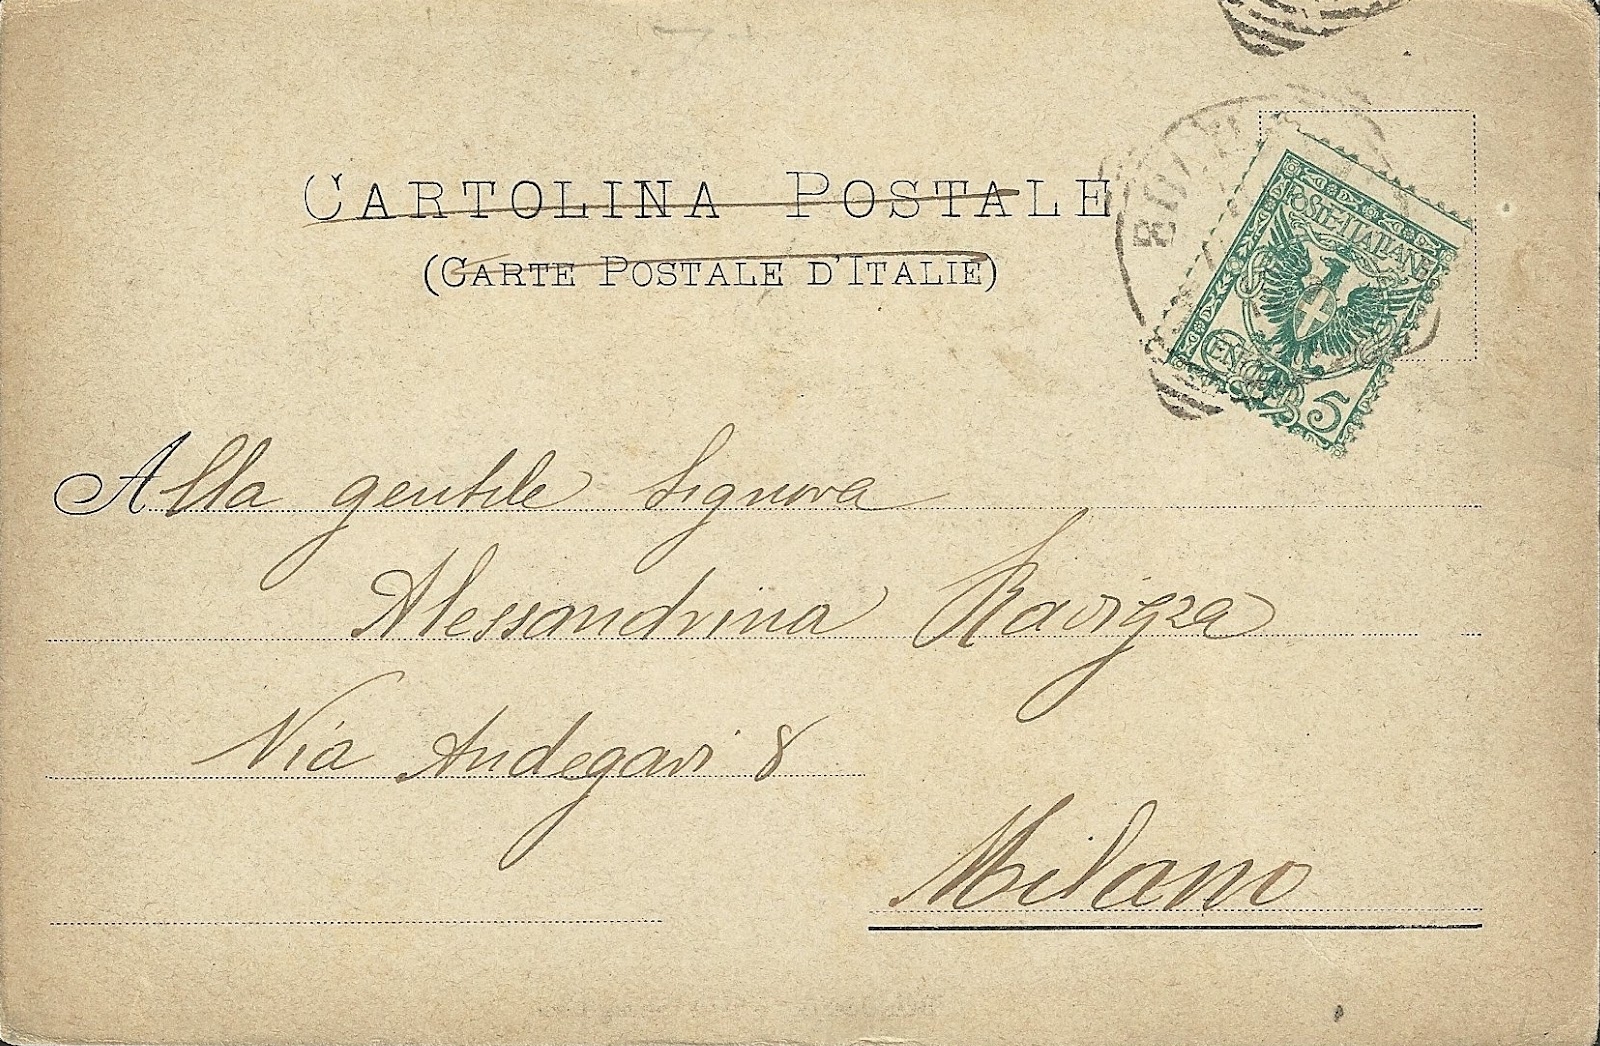 CARTOLINA POSTALE
(CARTE POSTALE D'ITALIE)
POSTE-ITALIANE
CENT. 5
Alla gentile Signora
Alessandrina Ravizza
Via Andegari 8
Milano